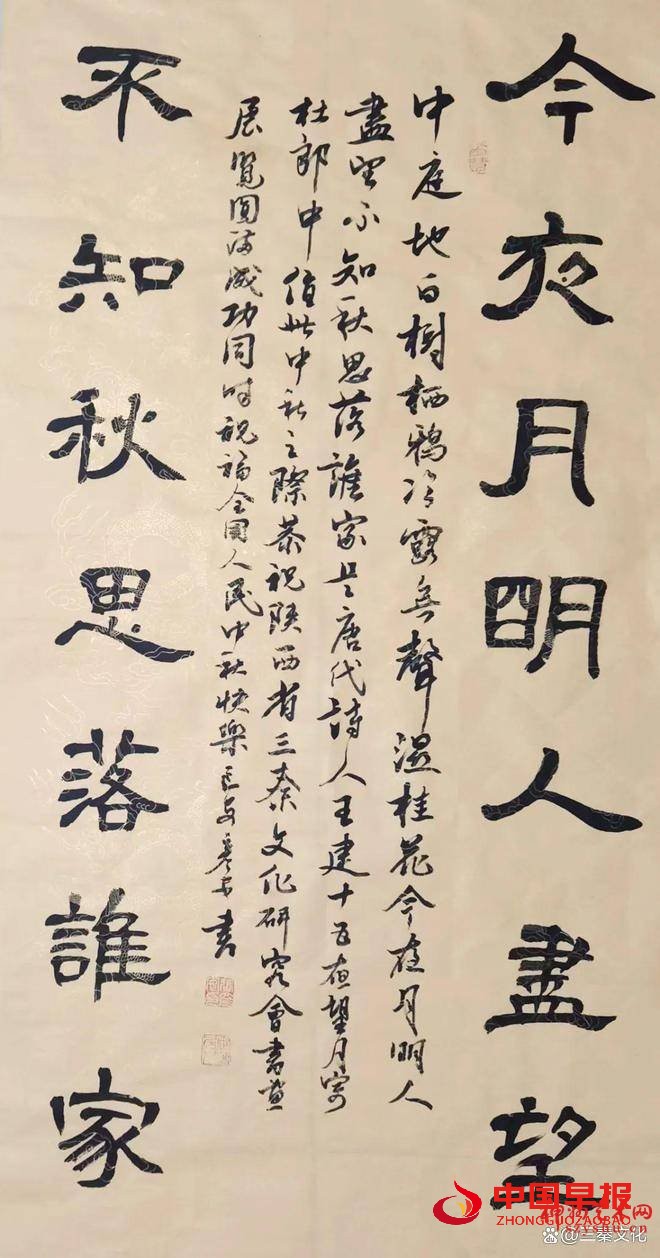 今夜月明人盡望
中庭地白樹栖鴉冷露無聲濕桂花今夜月明人
盡望不知秋思落誰家是唐代詩人王建十五夜望月寄
杜郎中值此中秋之際恭祝陝西省三秦文化研究會書画
展覽圓满成功同时祝福全國人民中秋快樂
書
不知秋思落誰家
中国早报
ZHONGGUOZAOBAO
@三秦文化